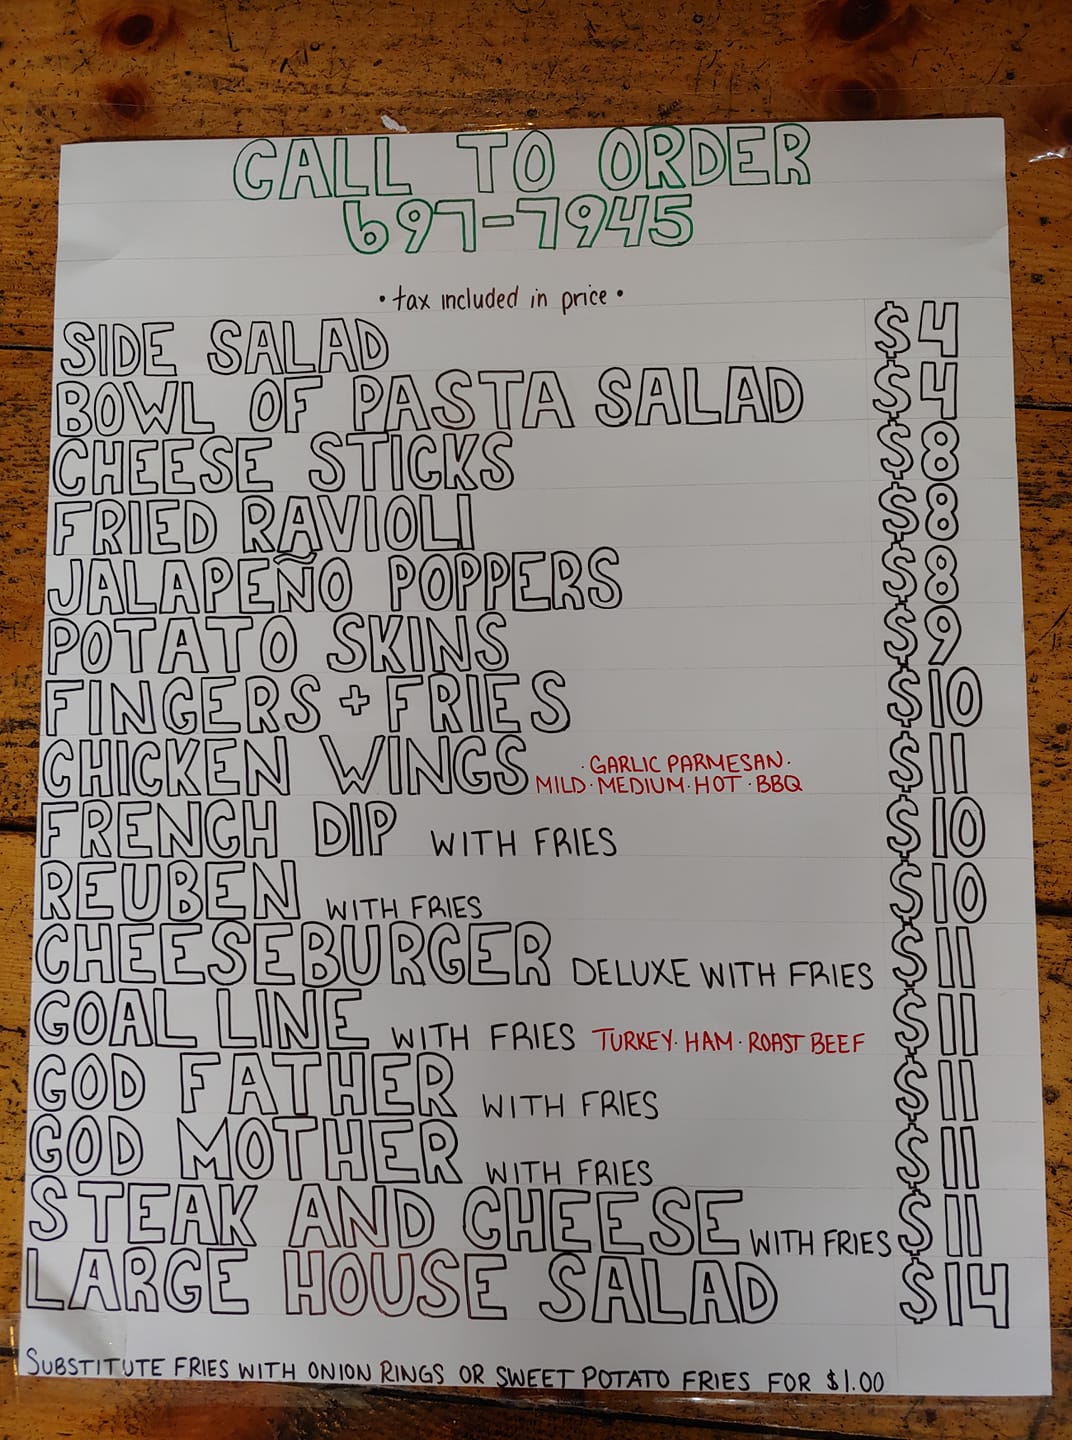 CALL TO ORDER
697-7945
• tax included in price •
SIDE SALAD $4
BOWL OF PASTA SALAD $4
CHEESE STICKS $8
FRIED RAVIOLI $8
JALAPEÑO POPPERS $8
POTATO SKINS $9
FINGERS + FRIES $10
CHICKEN WINGS · GARLIC PARMESAN · MILD · MEDIUM · HOT · BBQ $11
FRENCH DIP WITH FRIES $10
REUBEN WITH FRIES $10
CHEESEBURGER DELUXE WITH FRIES $11
GOAL LINE WITH FRIES TURKEY · HAM · ROAST BEEF $11
GOD FATHER WITH FRIES $11
GOD MOTHER WITH FRIES $11
STEAK AND CHEESE WITH FRIES $11
LARGE HOUSE SALAD $14
SUBSTITUTE FRIES WITH ONION RINGS OR SWEET POTATO FRIES FOR $1.00